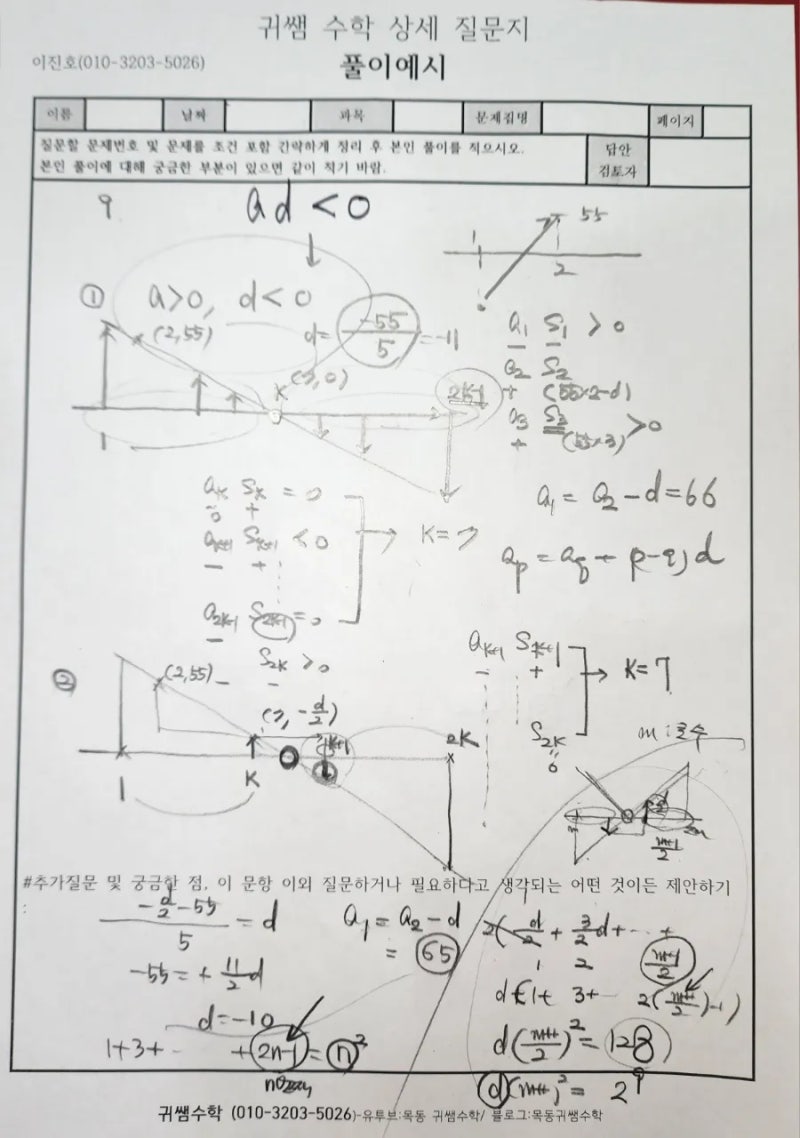 귀쌤 수학 상세 질문지
이진호(010-3203-5026)
풀이예시
이름 날짜 과목 문제집명 페이지
질문할 문제번호 및 문제를 조건 포함 간략하게 정리 후 본인 풀이를 적으시오.
본인 풀이에 대해 궁금한 부분이 있으면 같이 적기 바람.
답안
검토자
9 ad < 0
55
1 2
① a>0, d<0
(2,55)
d= -55/5 = -11
(7,0)
K
1
2K-1
a₁ S₁ > 0
a₂ S₂
+ (55×2-d)
a₃ S₃ > 0
+ (55×3)
a_K S_K = 0
0 +
a_K+1 S_K+1 < 0
- +
a_2K-1 S_2K-1 = 0
-
→ K=7
a₁ = a₂ - d = 66
a_p = a_q + (p-q)d
S_2K > 0
-
②
(2,55)
(7, -d/2)
1 K K+1 2K
a_K+1 S_K+1
- +
→ K=7
S_2K
0
m : 홀수
m+1/2
#추가질문 및 궁금한 점, 이 문항 이외 질문하거나 필요하다고 생각되는 어떤 것이든 제안하기
(-d/2 - 55)/5 = d
-55 = + 11/2 d
d = -10
a₁ = a₂ - d
= 65
1+3+ ··· + 2n-1 = n²
2(d/2 + 3/2 d + ··· +
1 2 m+1/2
d(1+ 3+ ··· 2(m+1/2)-1)
d(m+1/2)² = 128
d(m+1)² = 2⁹
귀쌤수학 (010-3203-5026)-유투브:목동 귀쌤수학/ 블로그:목동귀쌤수학